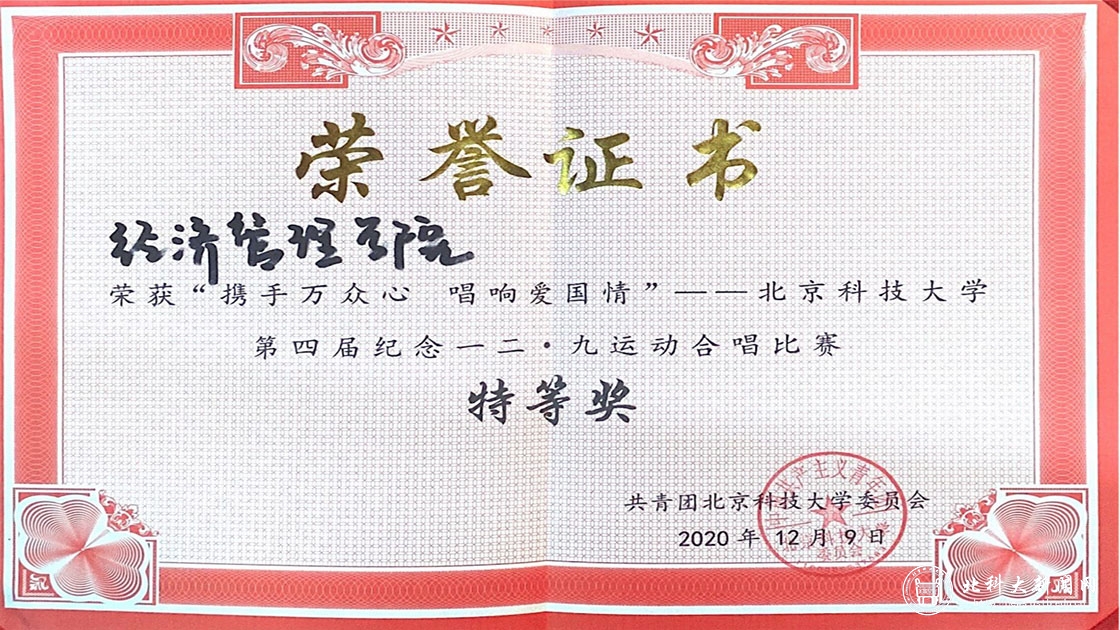 荣誉证书
经济管理学院
荣获“携手万众心 唱响爱国情”——北京科技大学
第四届纪念一二·九运动合唱比赛
特等奖
共青团北京科技大学委员会
2020 年 12 月 9 日
北科大新闻网